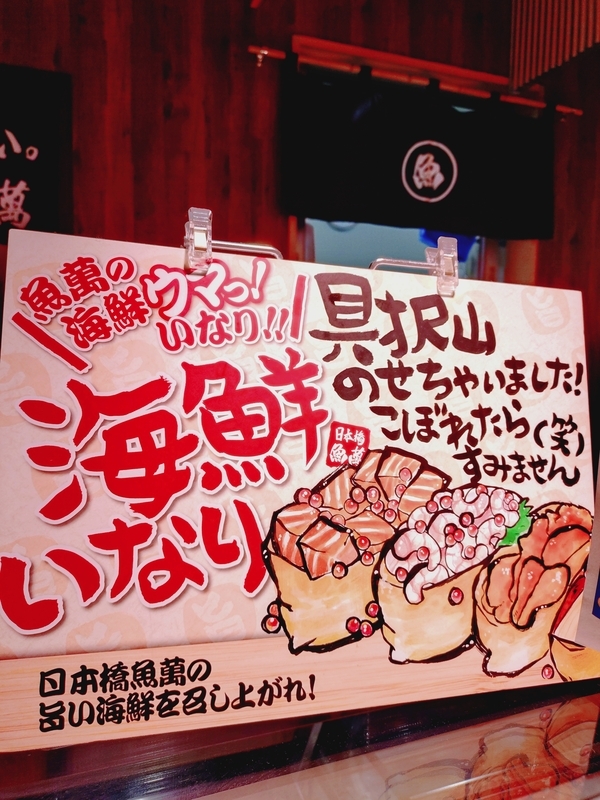 い。
萬
魚
魚萬の
海鮮ウマっ!
いなり!!
海鮮
いなり
具沢山
のせちゃいました!
こぼれたら(笑)
すみません
日本橋
魚萬
日本橋魚萬の
旨い海鮮を召し上がれ!